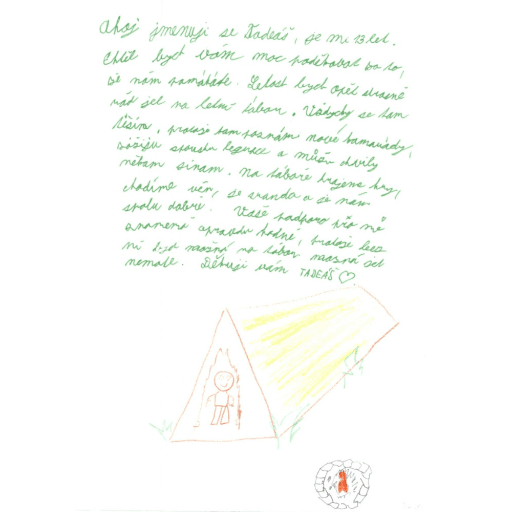 Ahoj jmenuji se Tadeáš, je mi 13 let.
Chtěl bych vám moc poděkovat za to,
že nám pomáháte. Letos bych opět strašně
rád jel na letní tábor. Vždycky se tam
těším, protože tam poznám nové kamarády,
zážiju spoustu legrace a můžu chvíly
někam. Na táboře hrajeme hry,
chodíme ven, je sranda a je nám
spolu dobře. Vaše podpora pro mě
znamená opravdu hodně, protože bez
ní bych možná na tábor jel
nemohl. Děkuji vám TADEÁŠ ♡